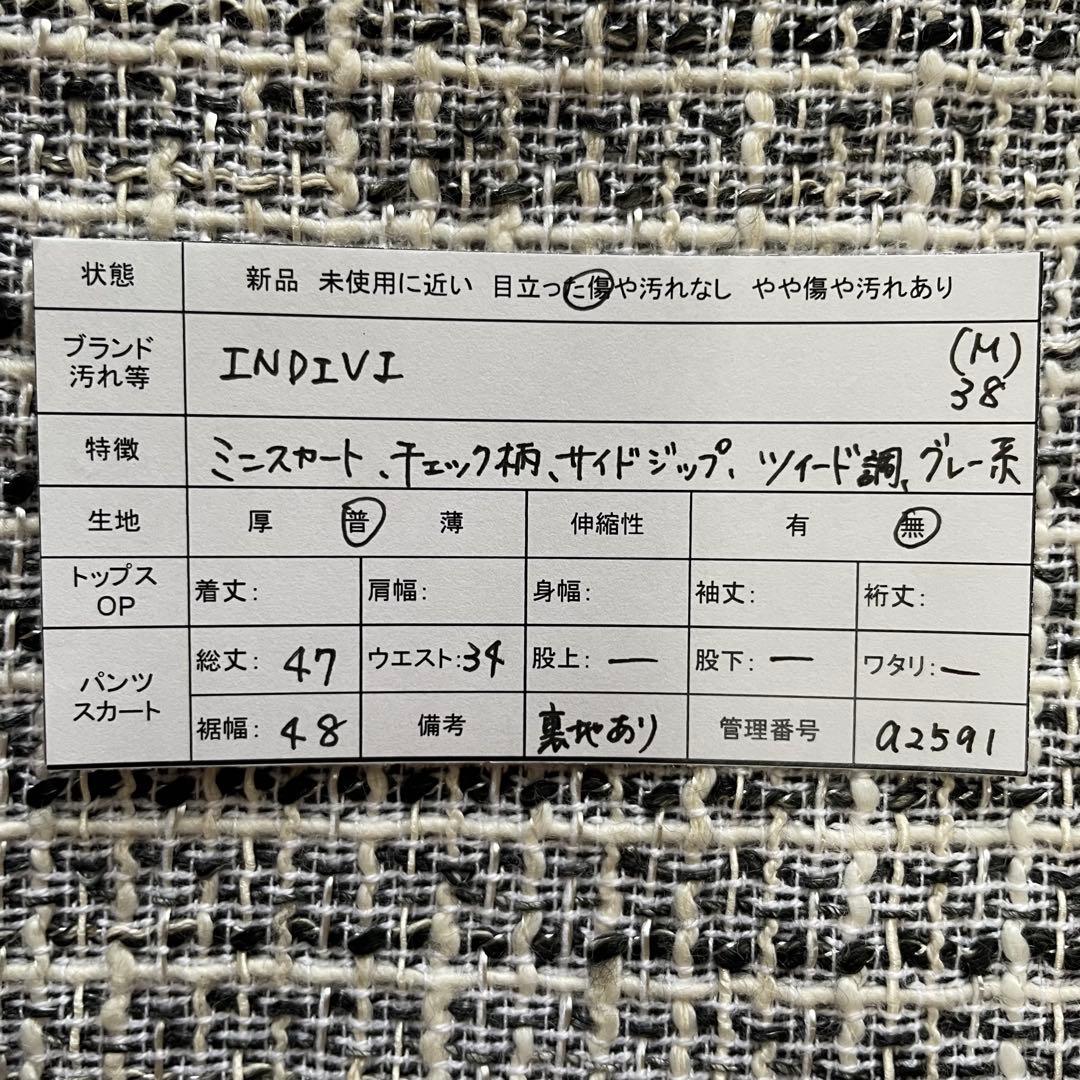 状態 新品 未使用に近い 目立った傷や汚れなし やや傷や汚れあり
ブランド
汚れ等
INDIVI
(M)
38
特徴 ミニスカート、チェック柄、サイドジップ、ツイード調、グレー系
生地 厚 普 薄 伸縮性 有 無
トップス
OP
着丈: 肩幅: 身幅: 袖丈: 裄丈:
パンツ
スカート
総丈: 47 ウエスト:34 股上: ー 股下: ー ワタリ:ー
裾幅: 48 備考 裏地あり 管理番号 a2591